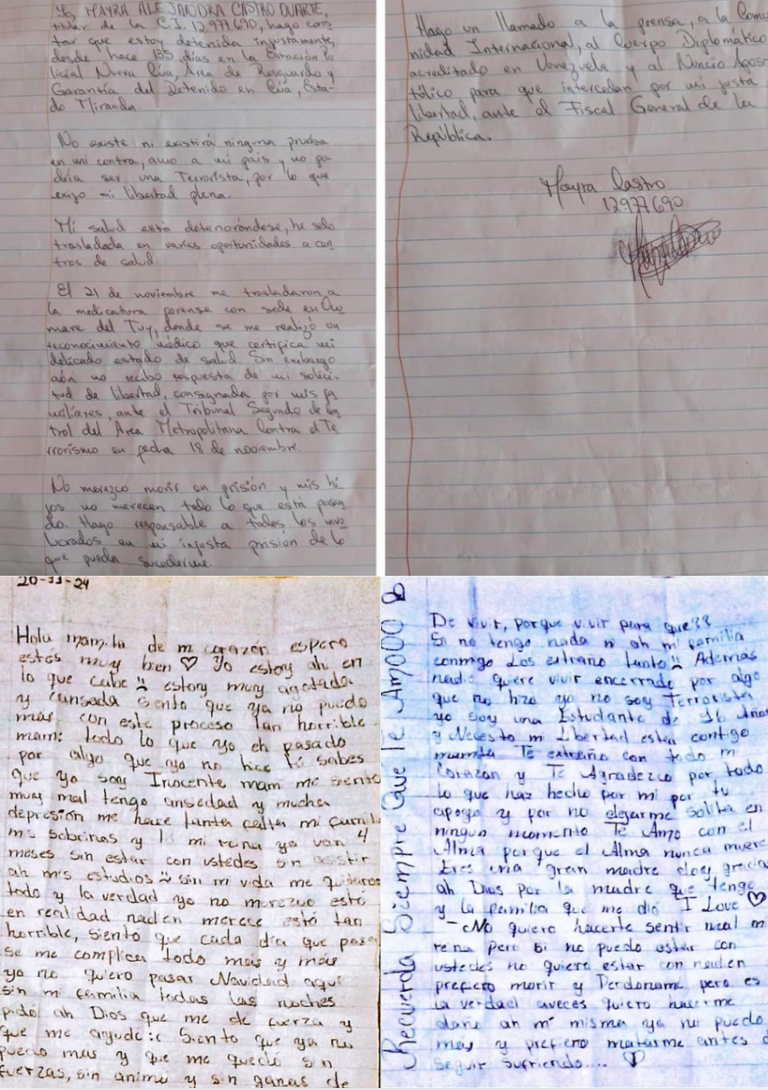 Yo, MAYRA ALEJANDRA CASTRO DUARTE,
titular de la C.I. 12977690, hago cons
tar que estoy detenida injustamente,
desde hace 135 días en la Estación Po
licial Nueva Cúa, Área de Resguardo y
Garantía del detenido en Cúa, Esta-
do Miranda.
No existe ni existirá ninguna prueba
en mi contra, amo a mi país y no po
dría ser una Terrorista, por lo que
exijo mi libertad plena.
Mi salud está deteriorándose, he sido
trasladada en varias oportunidades a cen
tros de salud.
El 21 de noviembre me trasladaron a
la medicatura forense con sede en Ocu
mare del Tuy, donde se me realizó un
reconocimiento médico que certifica mi
delicado estado de salud. Sin embargo
aún no recibo respuesta de mi solici-
tud de libertad, consignada por mis fa
miliares, ante el Tribunal Segundo de Con
trol del Área Metropolitana Contra el Te
rrorismo en fecha 18 de noviembre.
No merezco morir en prisión y mis hi
jos no merecen todo lo que está pasan
do. Hago responsable a todos los invo
lucrados en mi injusta prisión de lo
que pueda sucederme
Hago un llamado a la prensa, a la Comu
nidad Internacional, al Cuerpo Diplomático
acreditado en Venezuela y al Nuncio Apos
tólico para que intercedan por mi justa
libertad, ante el Fiscal General de la
República.
Mayra Castro
12977690
20-11-24
Hola mamita de mi corazón espero
estes muy bien ♡ Yo estoy ahi en
lo que cabe estoy muy agotada
y cansada siento que ya no puedo
más con este proceso tan horrible
mami todo lo que yo eh pasado
por algo que yo no hice tú sabes
que yo soy Inocente mam me siento
muy mal tengo ansiedad y mucha
depresión me hace tanta falta mi famili
mis sobrinas y tú mi reina ya van 4
meses sin estar con ustedes sin asistir
ah mis estudios sin mi vida me quitaron
todo y la verdad yo no merezco esto
en realidad nadien merece esto tan
horrible, siento que cada día que pasa
se me complica todo más y más
yo no quiero pasar Navidad aquí
sin mi familia todas las noches
pido ah Dios que me de fuerza y
que me ayude Siento que ya no
puedo más y que me quedo sin
fuerzas, sin animo y sin ganas de
De vivir, porque vivir para que??
Si no tengo nada ni ah mi familia
conmigo Los extraño tanto Además
nadie quiere vivir encerrado por algo
que no hizo yo no soy Terrorista
yo soy una Estudiante de 16 Años
y Necesito mi Libertad estar contigo
mamita Te extraño con todo mi
Corazón y Te Agradezco por todo
lo que haz hecho por mi por tu
apoyo y por no dejarme solita en
ningun momento Te Amo con el
Alma porque el Alma nunca muere
Eres una gran madre doy gracias
ah Dios por la madre que tengo
y la familia que me dió I Love ♡
- No quiero hacerte sentir mal mi
reina pero si no puedo estar con
ustedes no quiero estar con nadien
prefiero morir y Perdoname pero es
la verdad aveces quiero hacerme
daño ah mi misma ya no puedo
más y prefiero matarme antes de
seguir sufriendo.... ♡
Recuerda Siempre Que Te Amooo